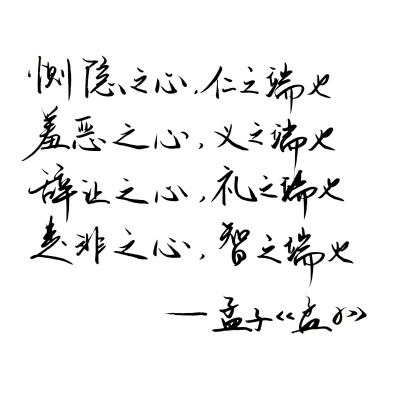 恻隐之心,仁之端也
羞恶之心,义之端也
辞让之心,礼之端也
是非之心,智之端也
—孟子《孟子》